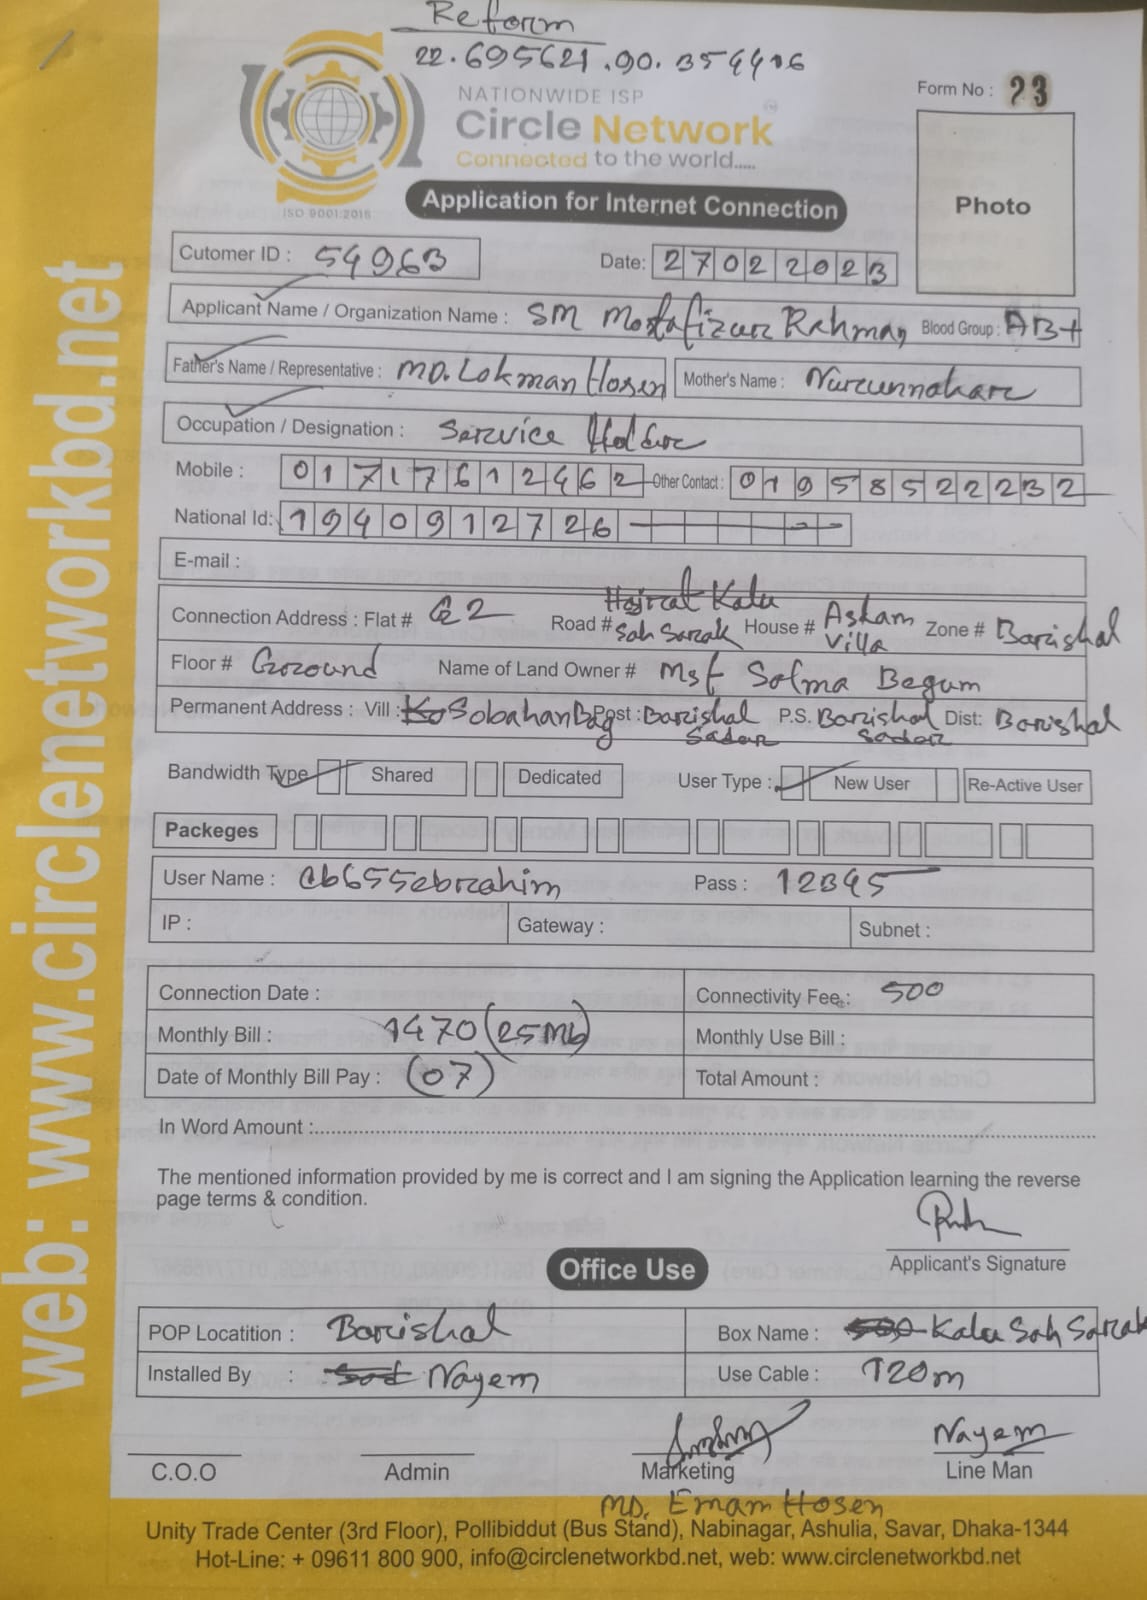 Reform
22.695621.90.354416
NATIONWIDE ISP
Circle Network
Connected to the world.....
ISO 9001:2015
Form No : 23
Photo
Application for Internet Connection
Cutomer ID : 54963
Date: 27022023
Applicant Name / Organization Name : SM Mostafizur Rahman Blood Group : AB+
Father's Name / Representative : MD. Lokman Hosen Mother's Name : Nurunnahar
Occupation / Designation : Service Holder
Mobile : 01717612462 Other Contact : 01958522232
National Id: 1940912726
E-mail :
Connection Address : Flat # G2 Road # Hajrat Kalu Sah Sarak House # Askam Villa Zone # Barishal
Floor # Ground Name of Land Owner # Mst Salma Begum
Permanent Address : Vill : Sobahan Bag Post : Barishal Sadar P.S. Barishal Sadar Dist: Barishal
Bandwidth Type Shared Dedicated User Type : New User Re-Active User
Packeges
User Name : cb655ebrahim Pass : 12345
IP : Gateway : Subnet :
Connection Date : Connectivity Fee : 500
Monthly Bill : 1470 (25Mb) Monthly Use Bill :
Date of Monthly Bill Pay : (07) Total Amount :
In Word Amount :
The mentioned information provided by me is correct and I am signing the Application learning the reverse
page terms & condition.
Applicant's Signature
Office Use
POP Locatition : Barishal Box Name : Kalu Sah Sarak
Installed By : Nayem Use Cable : 120m
Nayem
C.O.O Admin Marketing Line Man
MD. Emam Hosen
Unity Trade Center (3rd Floor), Pollibiddut (Bus Stand), Nabinagar, Ashulia, Savar, Dhaka-1344
Hot-Line: + 09611 800 900, info@circlenetworkbd.net, web: www.circlenetworkbd.net
web: www.circlenetworkbd.net